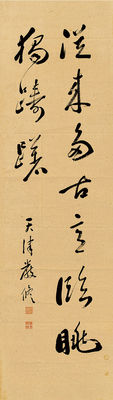 從来多古意臨眺
獨躊躇
天津嚴修